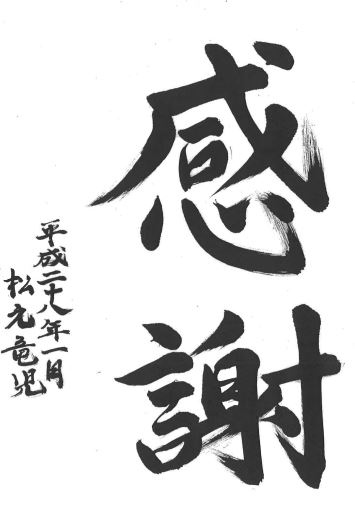 感謝
平成二十八年一月
松元竜児